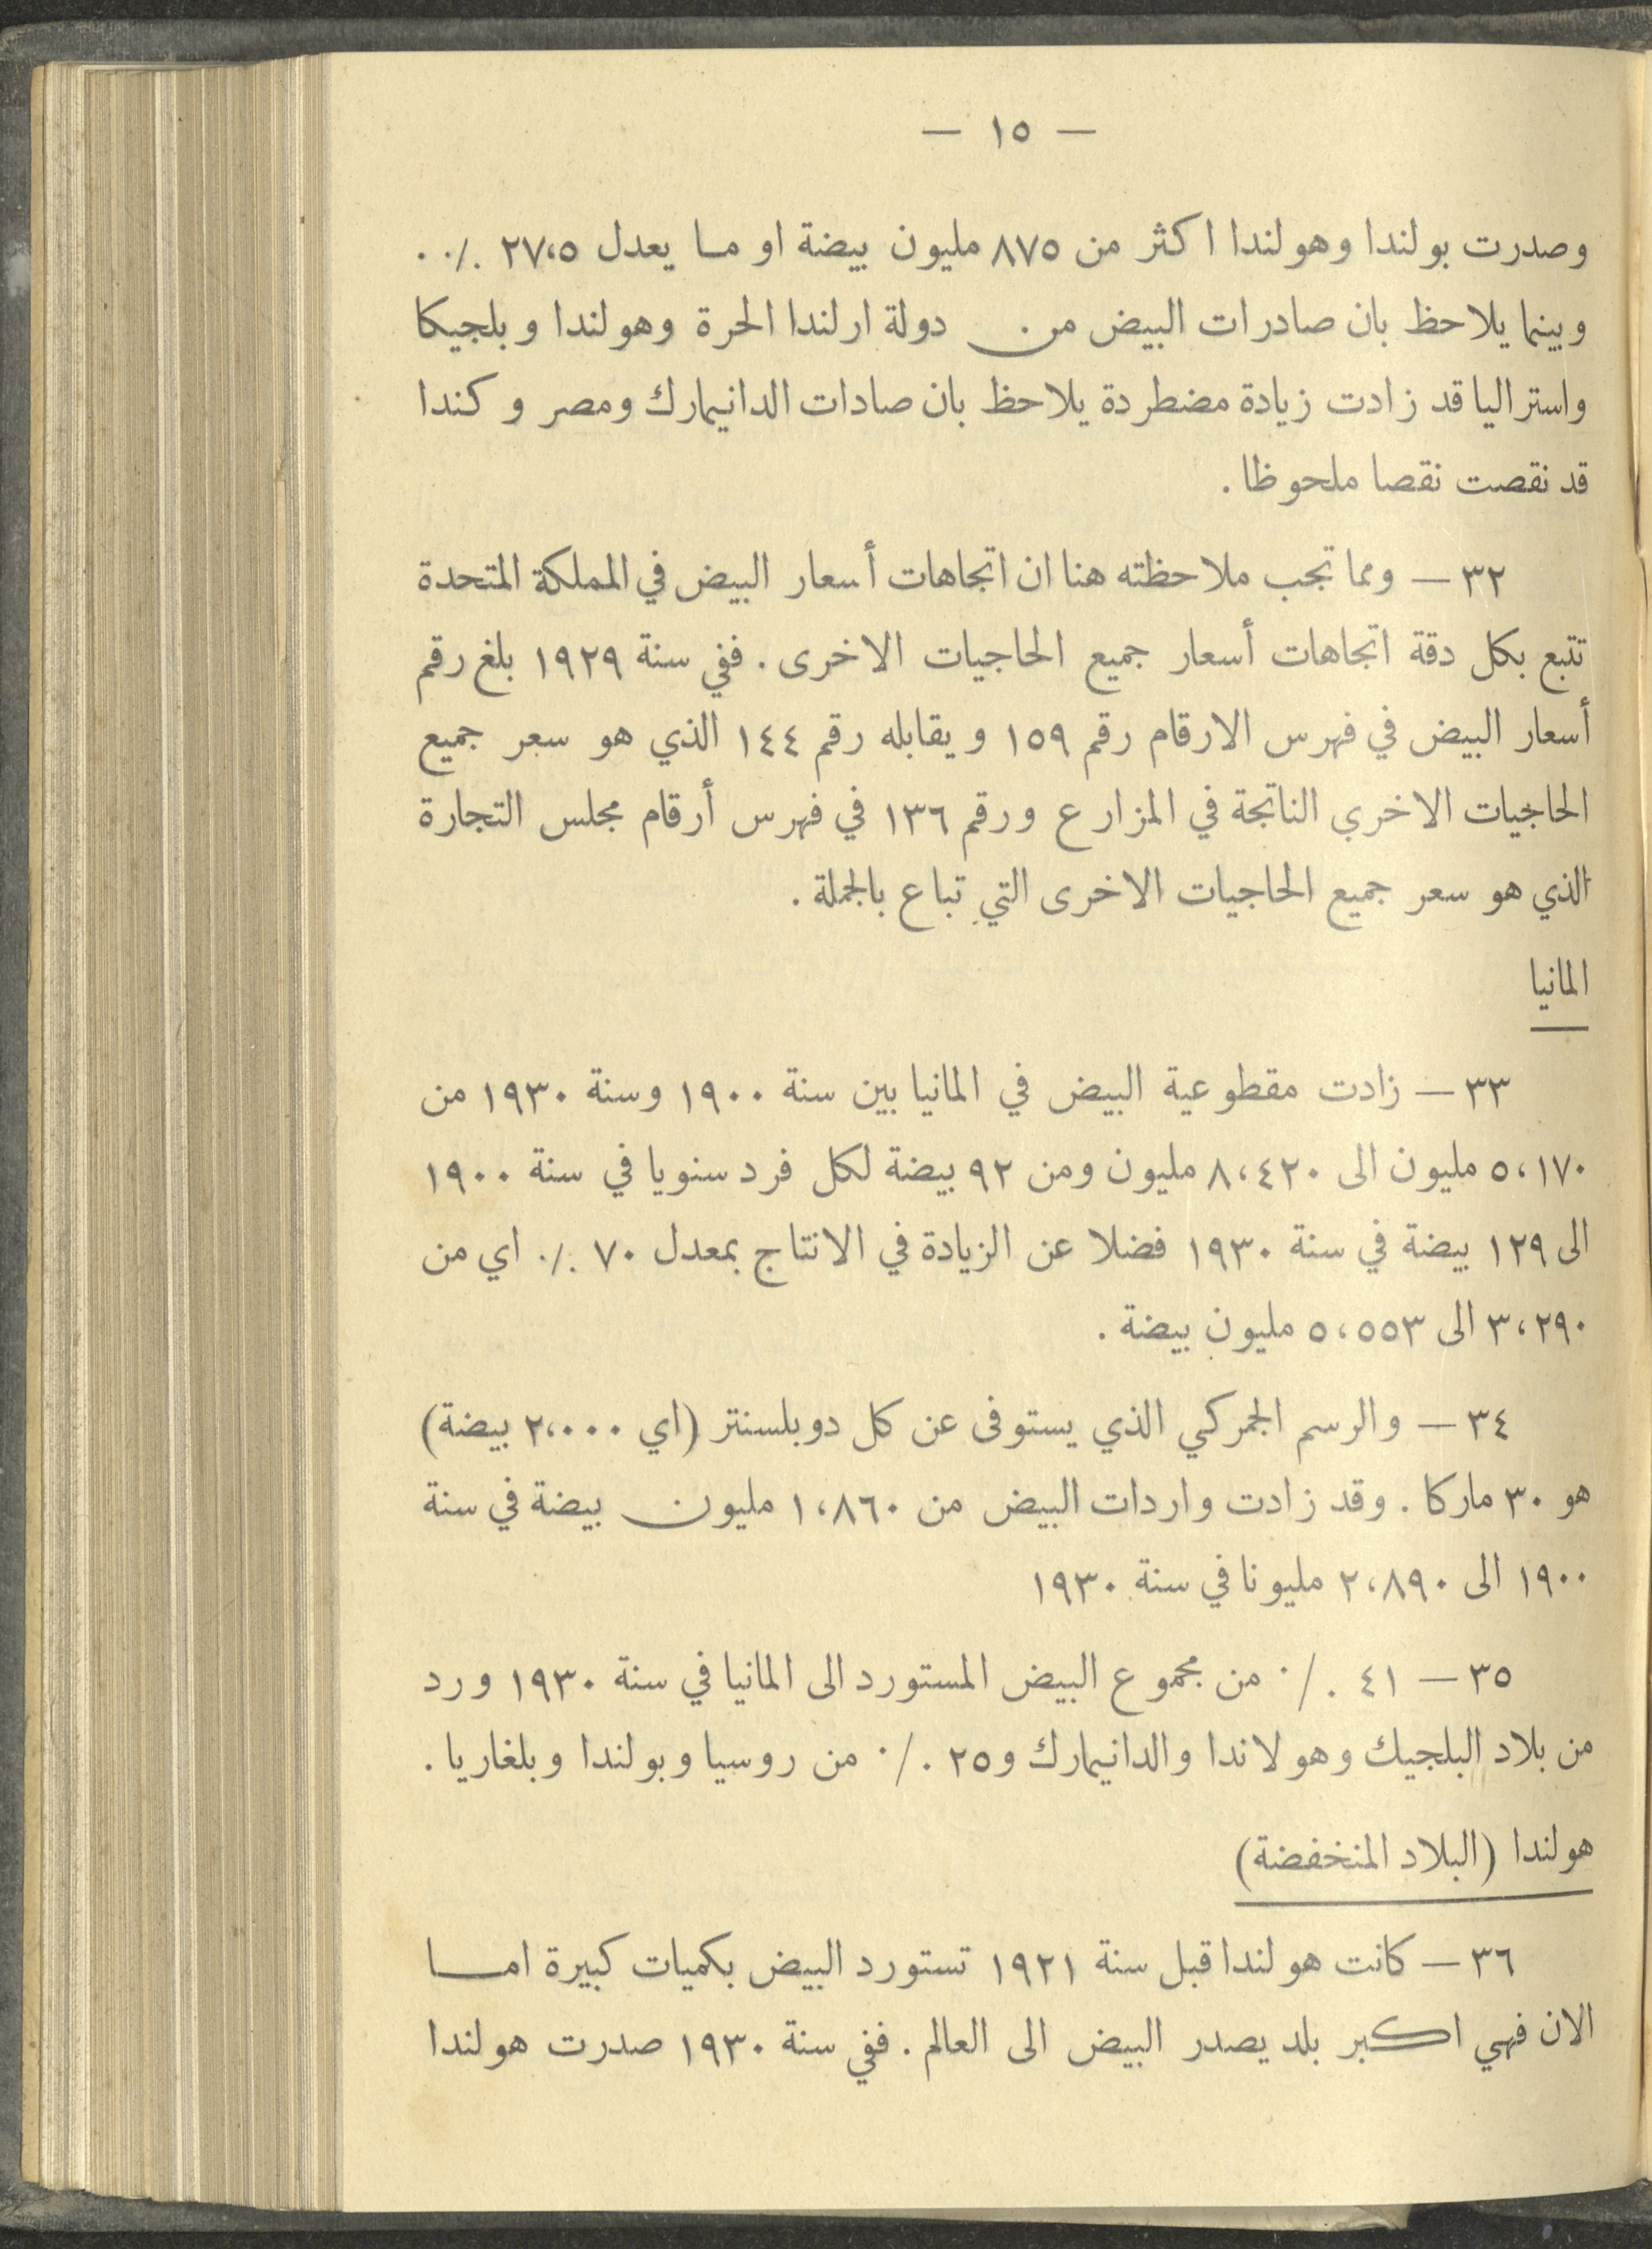 — ١٥ —
وصدرت بولندا وهولندا اكثر من ٨٧٥ مليون بيضة او ما يعدل ٢٧،٥ ٪ .
وبينما يلاحظ بان صادرات البيض من دولة ارلندا الحرة وهولندا وبلجيكا
واستراليا قد زادت زيادة مضطردة يلاحظ بان صادات الدانيمارك ومصر وكندا
قد نقصت نقصا ملحوظا .
٣٢ — ومما تجب ملاحظته هنا ان اتجاهات أسعار البيض في المملكة المتحدة
تتبع بكل دقة اتجاهات أسعار جميع الحاجيات الاخرى . ففي سنة ١٩٢٩ بلغ رقم
أسعار البيض في فهرس الارقام رقم ١٥٩ ويقابله رقم ١٤٤ الذي هو سعر جميع
الحاجيات الاخري الناتجة في المزارع ورقم ١٣٦ في فهرس أرقام مجلس التجارة
الذي هو سعر جميع الحاجيات الاخرى التي تباع بالجملة .
المانيا
٣٣ — زادت مقطوعية البيض في المانيا بين سنة ١٩٠٠ وسنة ١٩٣٠ من
٥،١٧٠ مليون الى ٨،٤٢٠ مليون ومن ٩٢ بيضة لكل فرد سنويا في سنة ١٩٠٠
الى ١٢٩ بيضة في سنة ١٩٣٠ فضلا عن الزيادة في الانتاج بمعدل ٧٠ ٪ اي من
٣،٢٩٠ الى ٥،٥٥٣ مليون بيضة .
٣٤ — والرسم الجمركي الذي يستوفى عن كل دوبلسنتر (اي ٢،٠٠٠ بيضة)
هو ٣٠ ماركا . وقد زادت واردات البيض من ١،٨٦٠ مليون بيضة في سنة
١٩٠٠ الى ٢،٨٩٠ مليونا في سنة ١٩٣٠
٣٥ — ٤١ ٪ من مجموع البيض المستورد الى المانيا في سنة ١٩٣٠ ورد
من بلاد البلجيك وهولاندا والدانيمارك و٢٥ ٪ من روسيا وبولندا وبلغاريا .
هولندا (البلاد المنخفضة)
٣٦ — كانت هولندا قبل سنة ١٩٢١ تستورد البيض بكميات كبيرة اما
الان فهي اكبر بلد يصدر البيض الى العالم . ففي سنة ١٩٣٠ صدرت هولندا